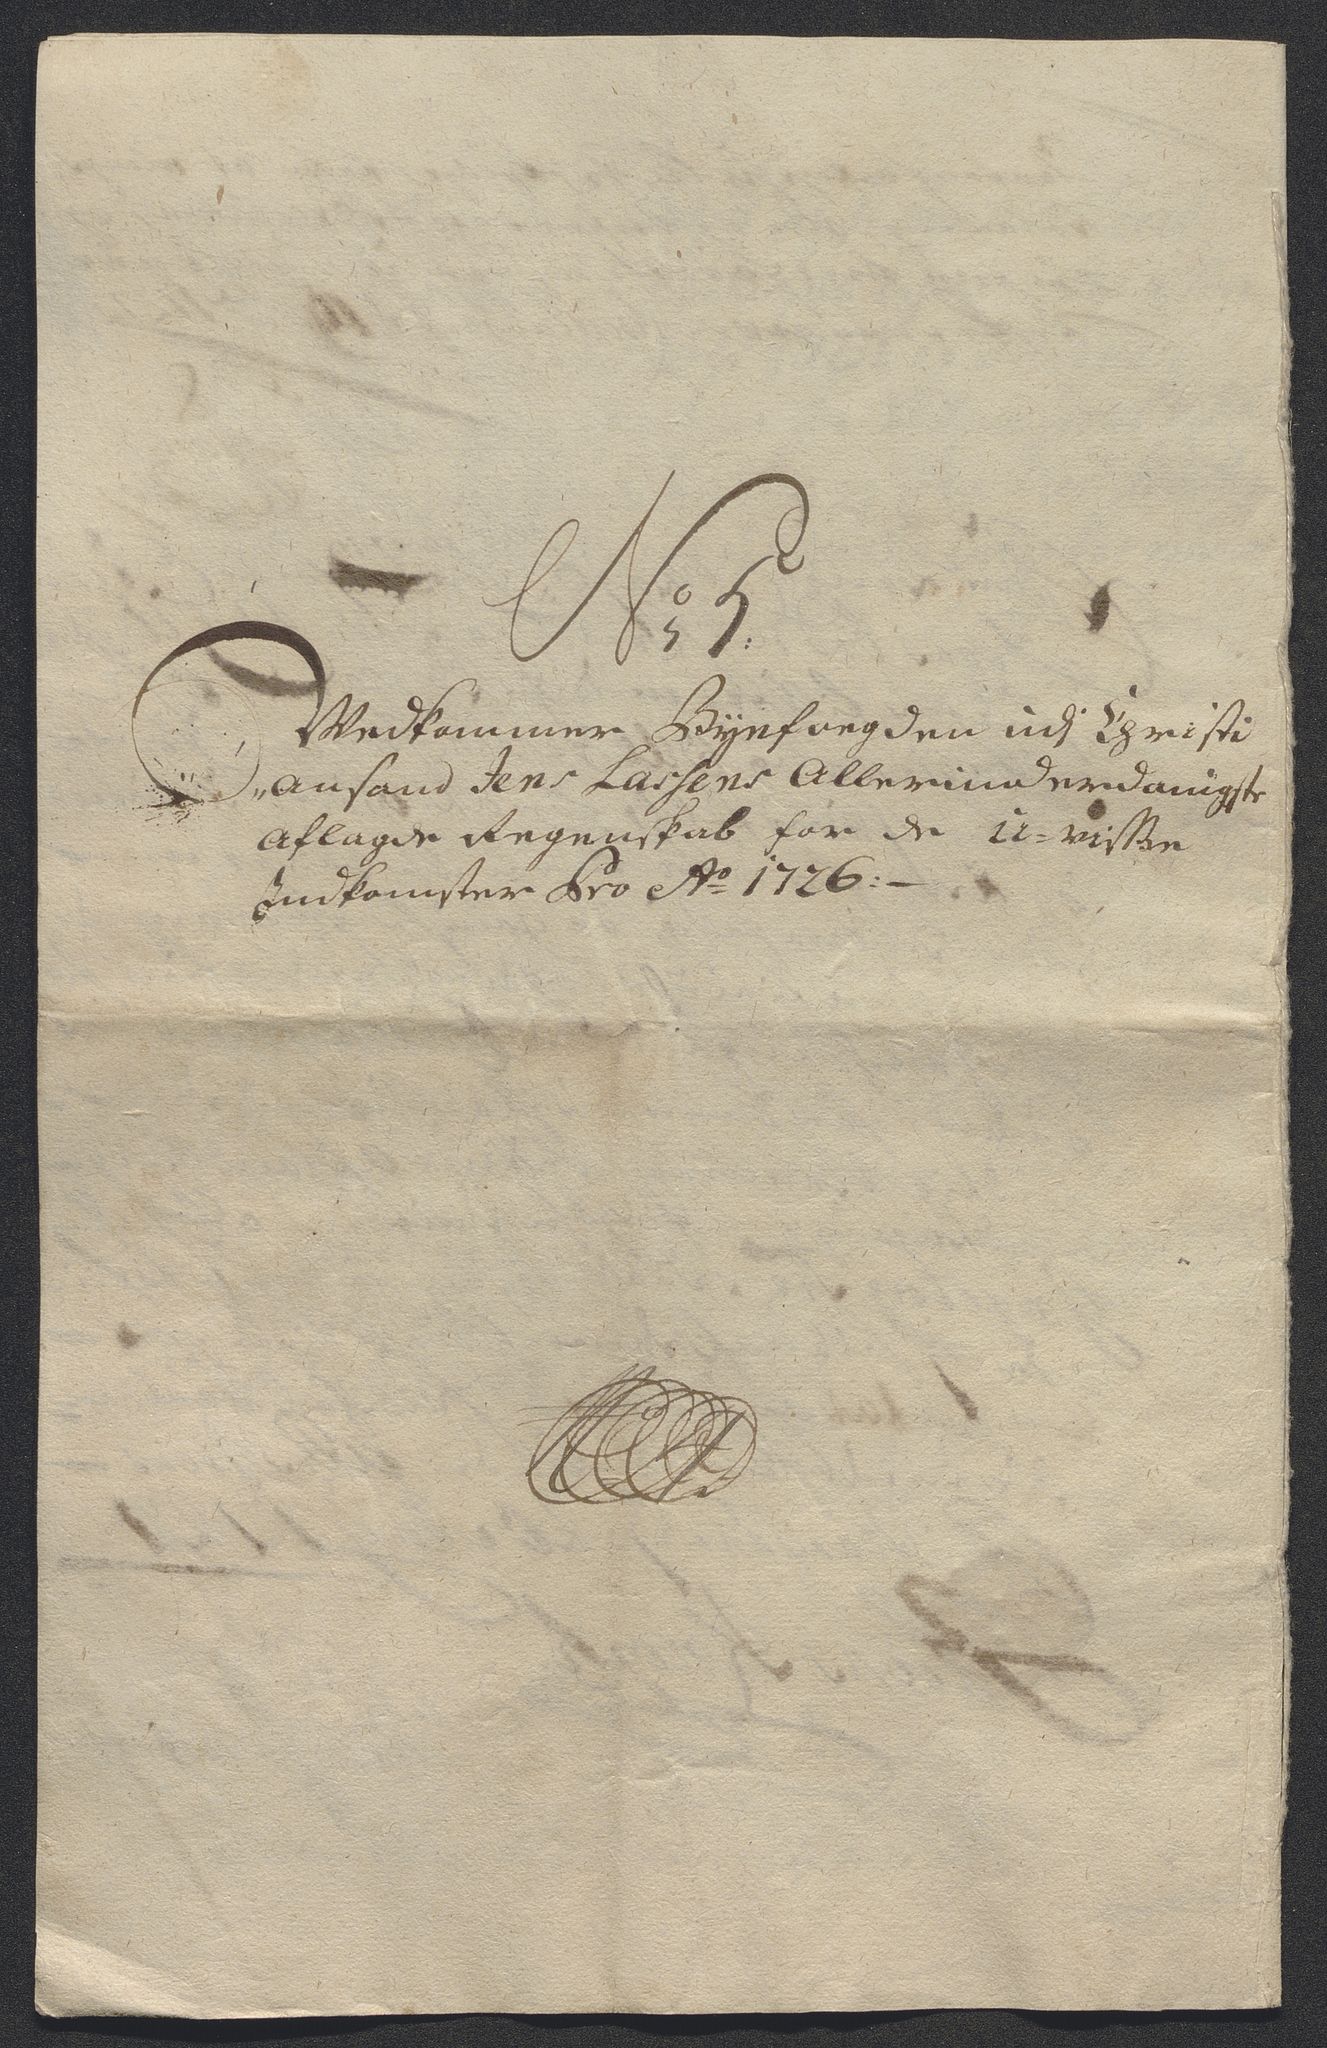 No 5:
Vedkommer Byefoegden udj Christi
„ansand Jens Lassens Allerunderdanigste
Aflagde Regenskab for de U-visse
Indkomster Pro Ao 1726:-